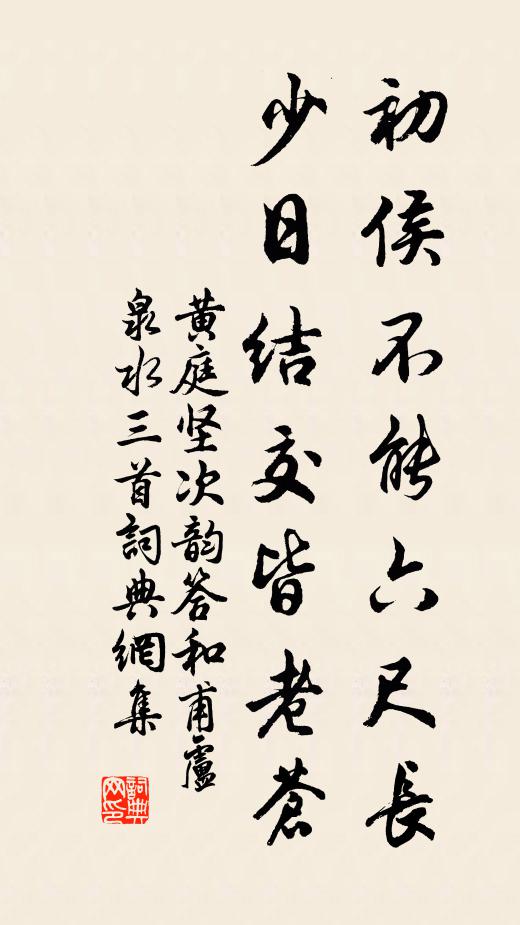 初侯不能六尺長
少日結交皆老蒼
黄庭坚次韵答和甫盧
泉水三首詞典網集
詞典网印